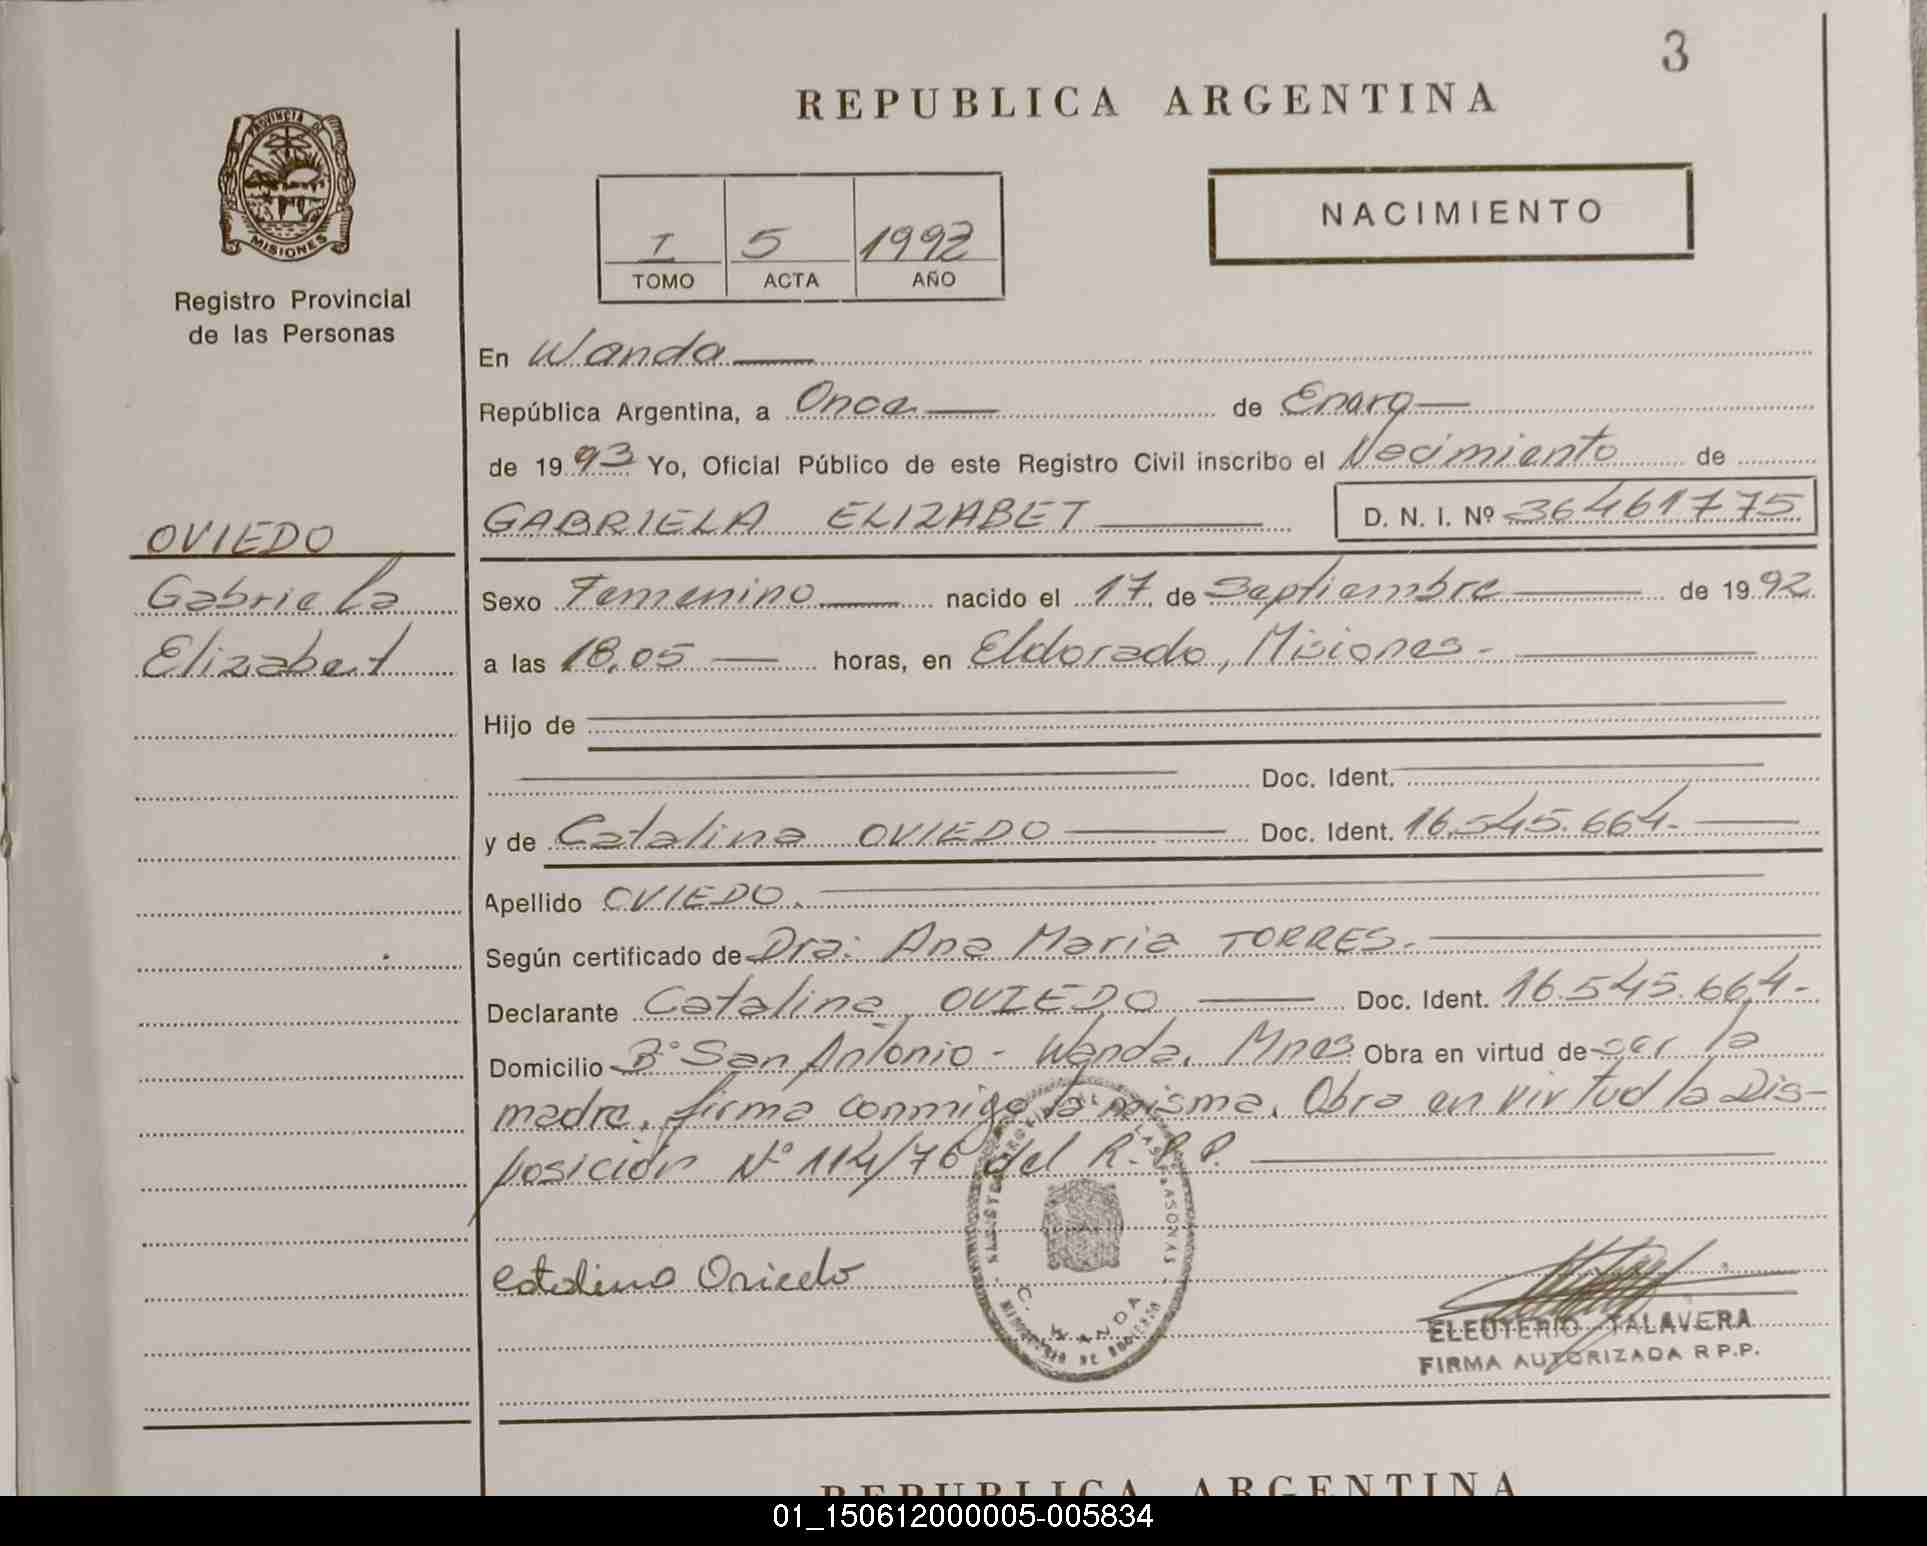 3
REPUBLICA ARGENTINA
PROVINCIA DE
MISIONES
Registro Provincial
de las Personas
I 5 1992
TOMO ACTA AÑO
NACIMIENTO
En Wanda
República Argentina, a Once de Enero
de 1993 Yo, Oficial Público de este Registro Civil inscribo el Nacimiento de
GABRIELA ELIZABET D. N. I. Nº 36461775
OVIEDO
Gabriela
Elizabet
Sexo Femenino nacido el 17 de Septiembre de 1992
a las 18,05 horas, en Eldorado, Misiones.-
Hijo de
Doc. Ident.
y de Catalina OVIEDO Doc. Ident. 16.545.664.
Apellido OVIEDO.
Según certificado de Dra: Ana Maria TORRES.
Declarante Catalina OVIEDO Doc. Ident. 16.545.664-
Domicilio Bº San Antonio - Wanda, Mnes Obra en virtud de ser la
madre, firma conmigo la misma. Obra en virtud la Dis-
posición Nº 114/76 del R.P.P.
Catalina Oviedo
WANDA
ELEUTERIO TALAVERA
FIRMA AUTORIZADA R.P.P.
REPUBLICA ARGENTINA
01_150612000005-005834